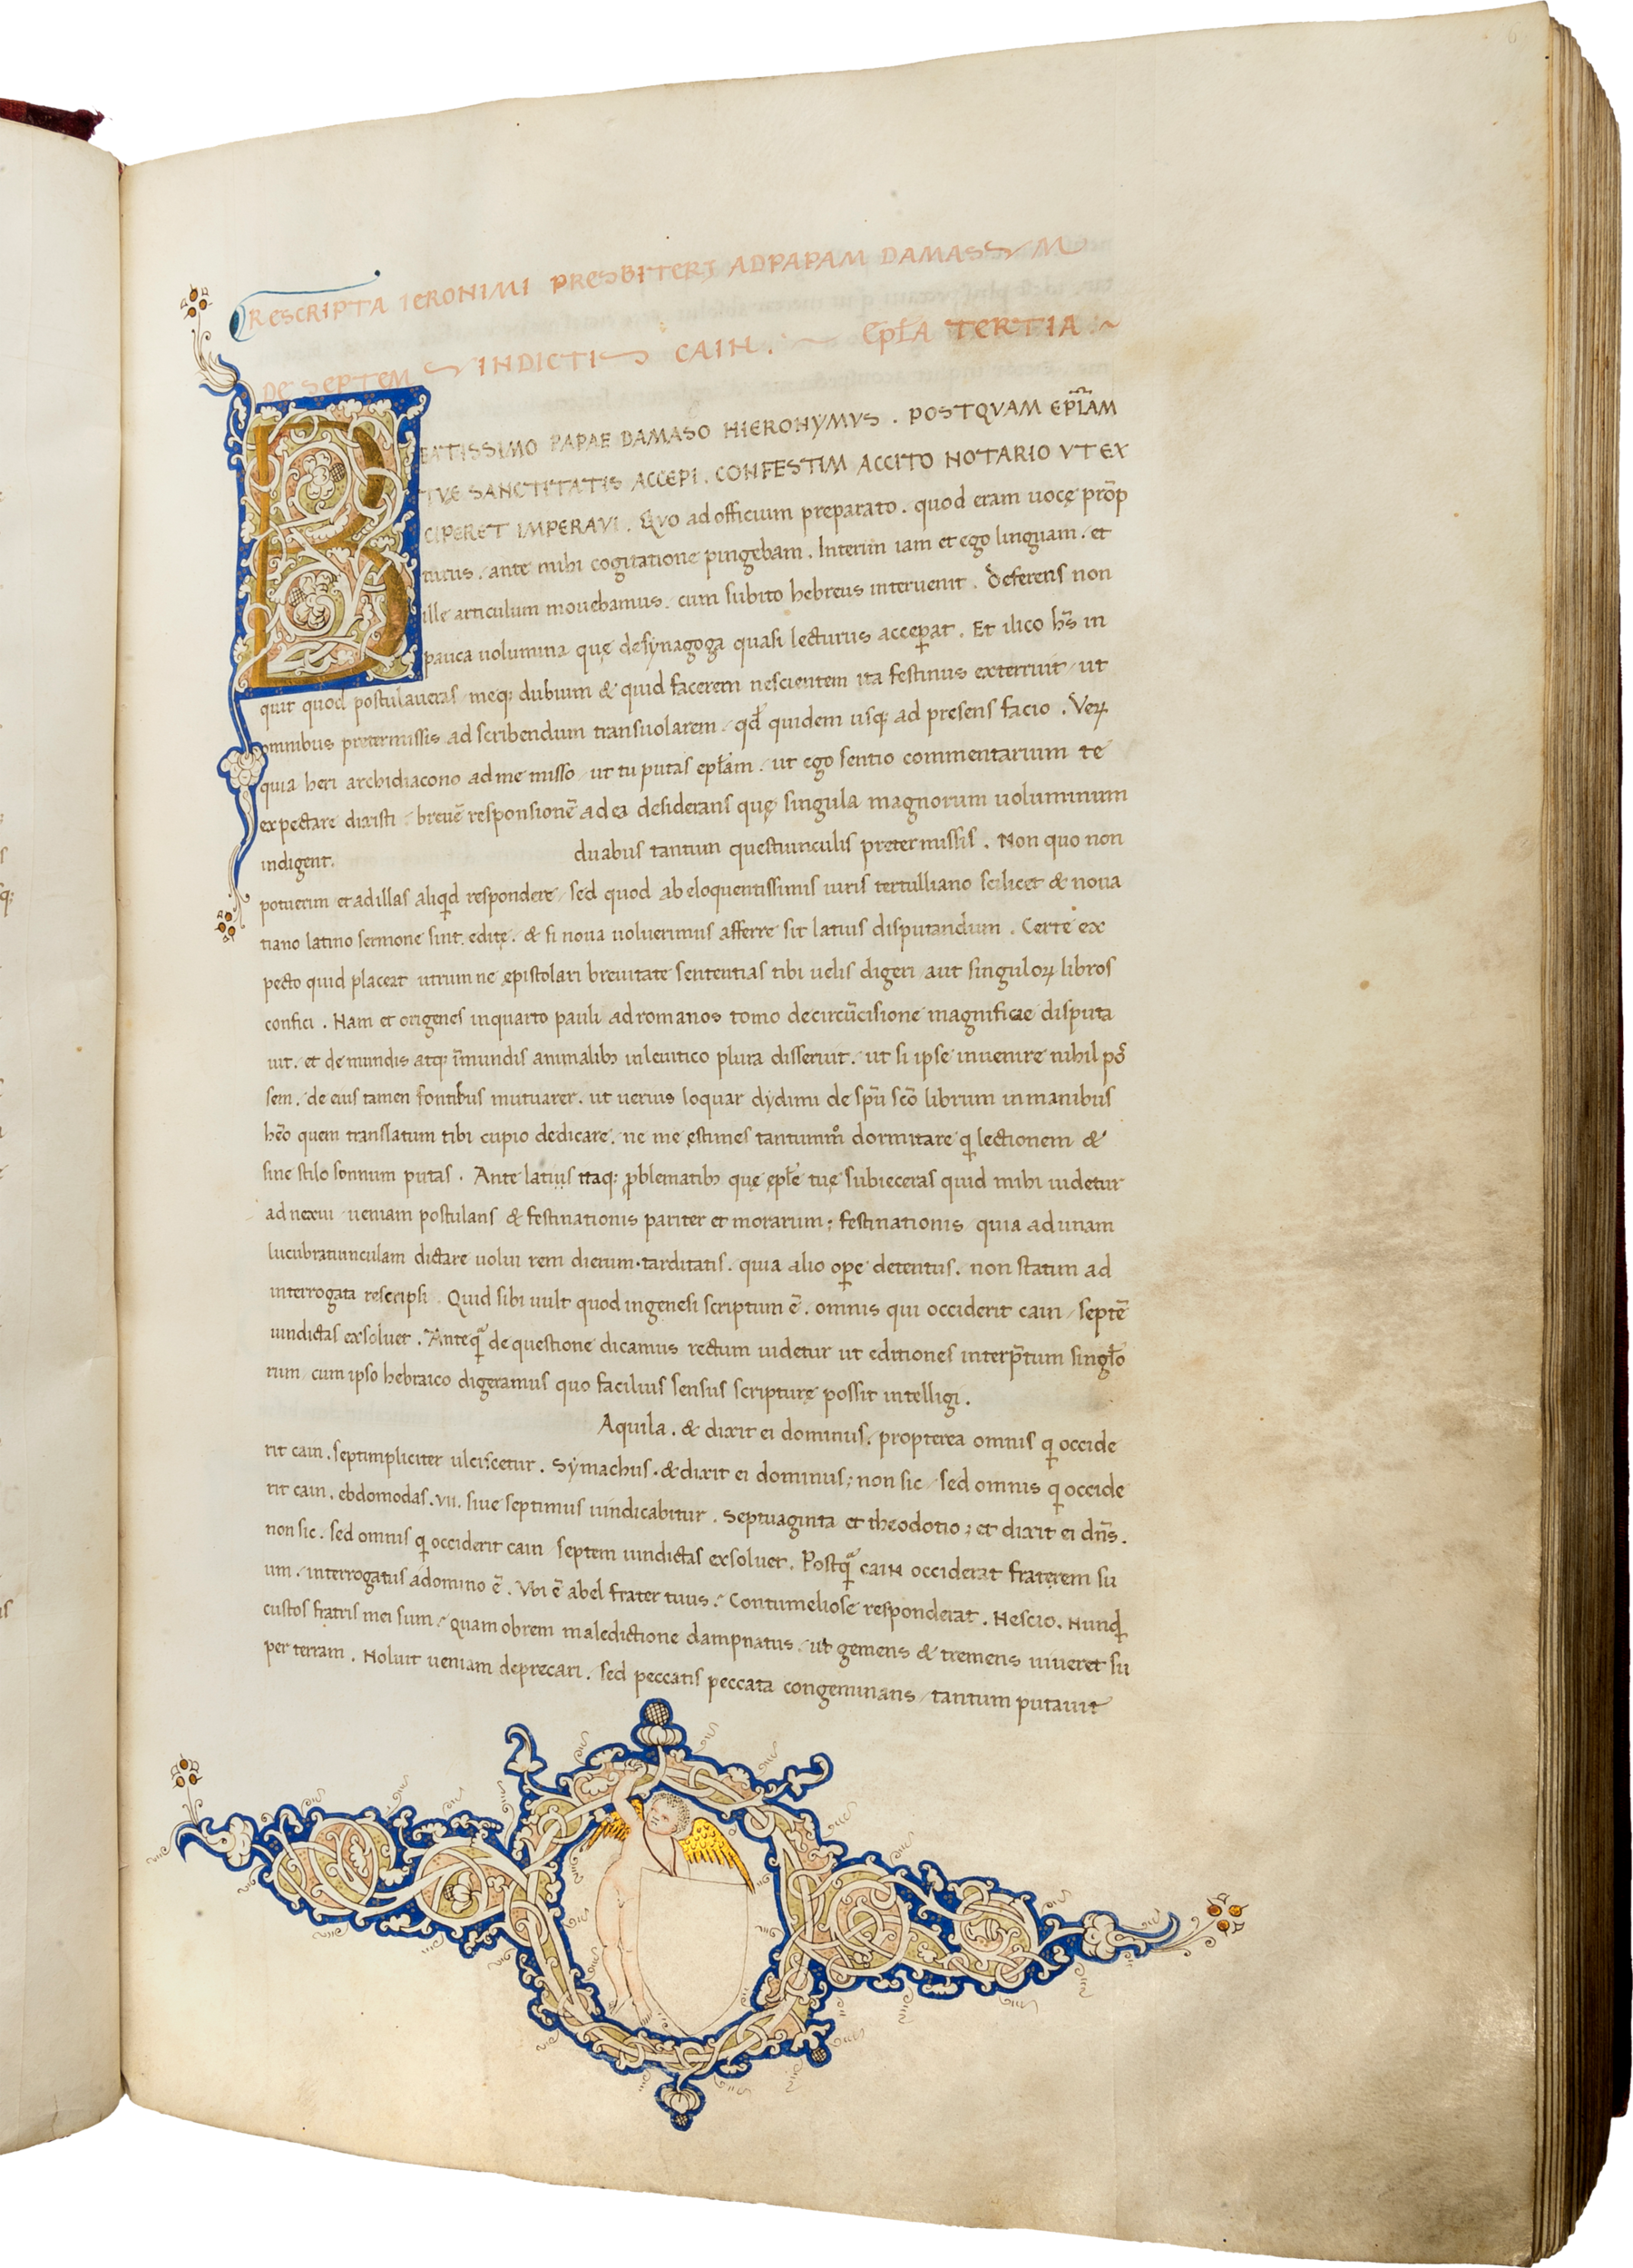 RESCRIPTA IERONIMI PRESBITERI AD PAPAM DAMASSVM
DE SEPTEM VINDICTIS CAIN. Epl̄A TERTIA
BEATISSIMO PAPAE DAMASO HIERONYMVS . POSTQVAM EPL̄AM
TVE SANCTITATIS ACCEPI . CONFESTIM ACCITO NOTARIO VT EX
CIPERET IMPERAVI . Quo ad officium preparato . quod eram uocę prōp
turus . ante mihi cogitatione pingebam . Interim iam et ego linguam . et
ille articulum mouebamus . cum subito hebreus interuenit . deferens non
pauca uolumina quę de synagoga quasi lecturus acceꝑat . Et ilico hr̄s in
quit quod postulaueras / meq; dubium & quid facerem nescientem ita festinus exterruit / ut
omnibus pretermissis ad scribendum transuolarem . qd̄ quidem usq; ad presens facio . Veꝝ
quia heri archidiacono ad me misso / ut tu putas epl̄am . ut ego sentio commentarium te
expectare dixisti . breuē responsionē ad ea desiderans quę singula magnorum uoluminum
indigent. duabus tantum questiunculis pretermissis . Non quo non
potuerim et ad illas aliqd respondere / sed quod ab eloquentissimis iuris tertulliano scilicet & noua
tiano latino sermone sint editę . & si noua uoluerimus afferre sit latius disputandum . Certe ex
pecto quid placeat utrum ne epistolari breuitate sententias tibi uelis digeri aut singuloꝝ libros
confici . Nam et origenes in quarto pauli ad romanos tomo de circūcisione magnifice disputa
uit . et de mundis atq; īmundis animalibꝫ in leuitico plura disseruit . ut si ipse inuenire nihil pos̄
sem . de eius tamen fontibus mutuarer . ut uerius loquar dydimi de spū scō librum in manibus
hēo quem translatum tibi cupio dedicare . ne me ęstimes tantumm̊ dormitare ꝗ lectionem &
sine stilo somnum putas . Ante latius itaq; ꝓblematibꝫ quę epl̄e tuę subieceras quid mihi uidetur
ad nexui ueniam postulans & festinationis pariter et morarum ; festinationis / quia ad unam
lucubratiunculam dictare uolui rem dierum . tarditatis . quia alio oꝑe detentus . non statim ad
interrogata rescripsi . Quid sibi uult quod in genesi scriptum ē . omnis qui occiderit cain / septē
uindictas exsoluet . Anteqͣ de questione dicamus rectum uidetur ut editiones interp̄tum singl̄o
rum / cum ipso hebraico digeramus quo facilius sensus scripturę possit intelligi .
Aquila . & dixit ei dominus . propterea omnis ꝗ occide
rit cain . septimpliciter ulciscetur . Symachus . & dixit ei dominus ; non sic / sed omnis ꝗ occide
rit cain . ebdomodas . vii . siue septimus uindicabitur . Septuaginta et theodotio ; et dixit ei dn̄s .
non sic . sed omnis ꝗ occiderit cain septem uindictas exsoluet . Postqͣ cain occiderat fraterem su
um . interrogatus a domino ē . Vbi ē abel frater tuus . Contumeliose responderat . Nescio . Nunꝗ
custos fratris mei sum . quam obrem maledictione dampnatus . ut gemens & tremens uiueret su
per terram . Noluit ueniam deprecari . sed peccatis peccata congeminans / tantum putauit